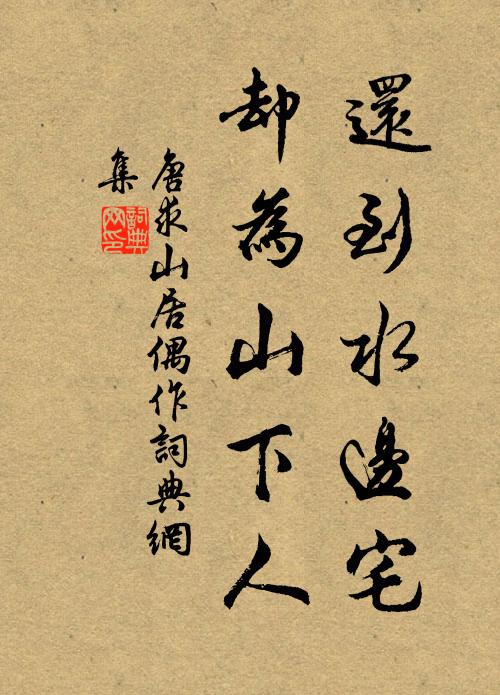 還到水邊宅
却為山下人
唐求山居偶作詞典網
集
詞典
网印